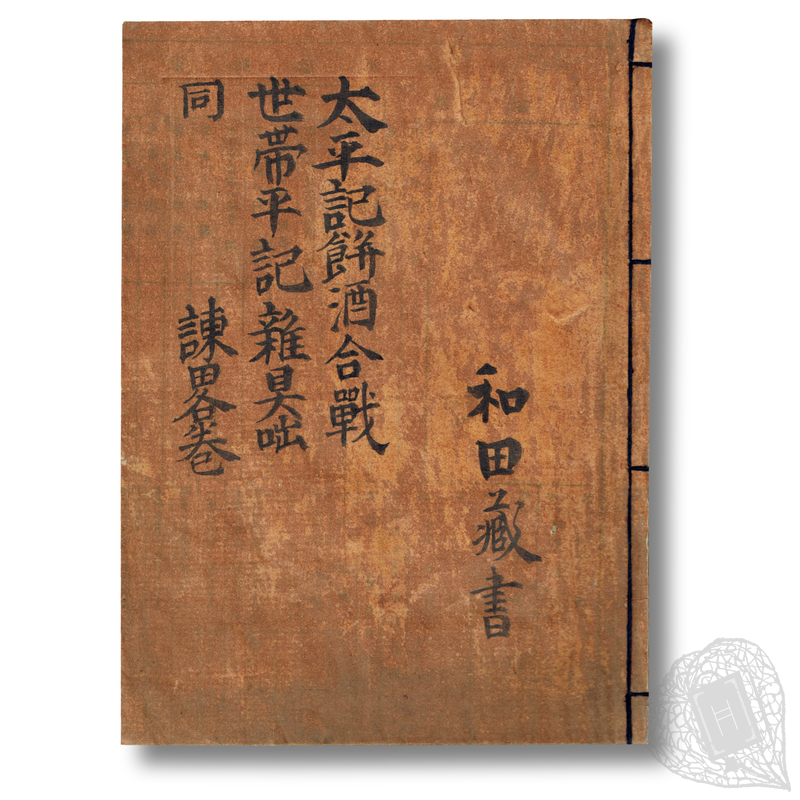 和田藏書
太平記餅酒合戰
世帯平記雜具咄
同 諌畧巻
H